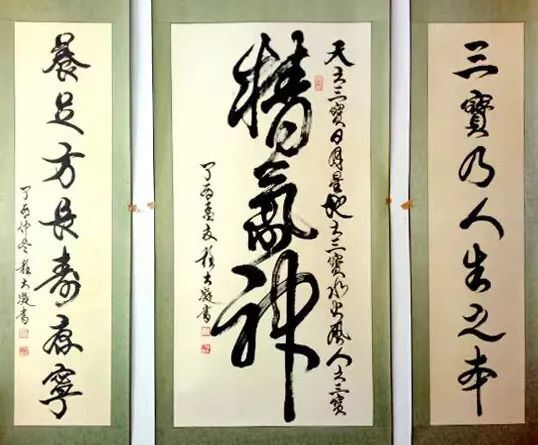 三寶乃人生之本
天之三寶日月星地之三寶水火風人之三寶
精氣神
丁酉書
養足方長壽康寧
丁酉仲冬書